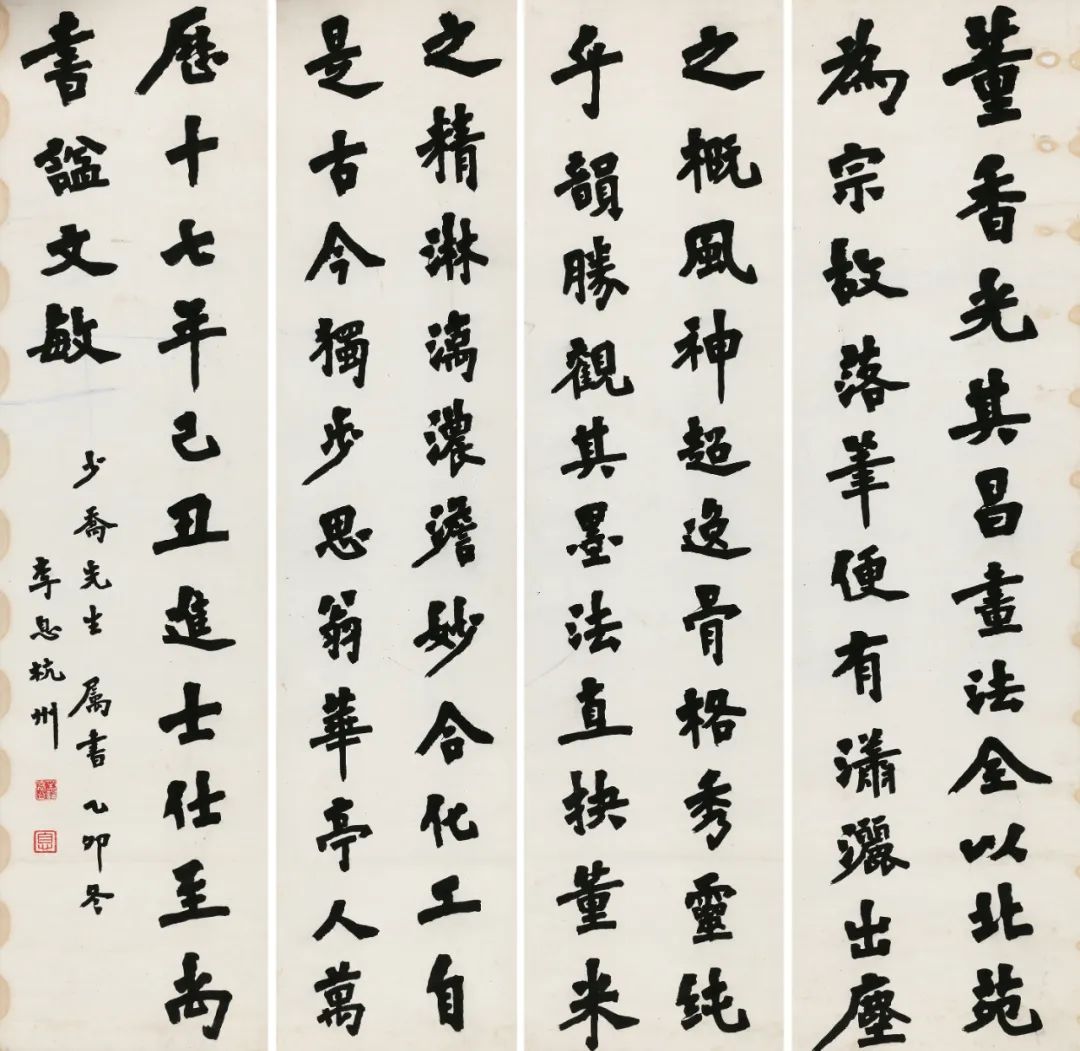 董香光其昌畫法全以北苑
為宗故落筆便有瀟灑出塵
之概風神超逸骨格秀靈純
乎韻勝觀其墨法直抉董米
之精淋漓濃澹妙合化工自
是古今獨步思翁華亭人萬
歷十七年己丑進士仕至尚
書諡文敏
少喬先生屬書乙卯冬
李息杭州
息